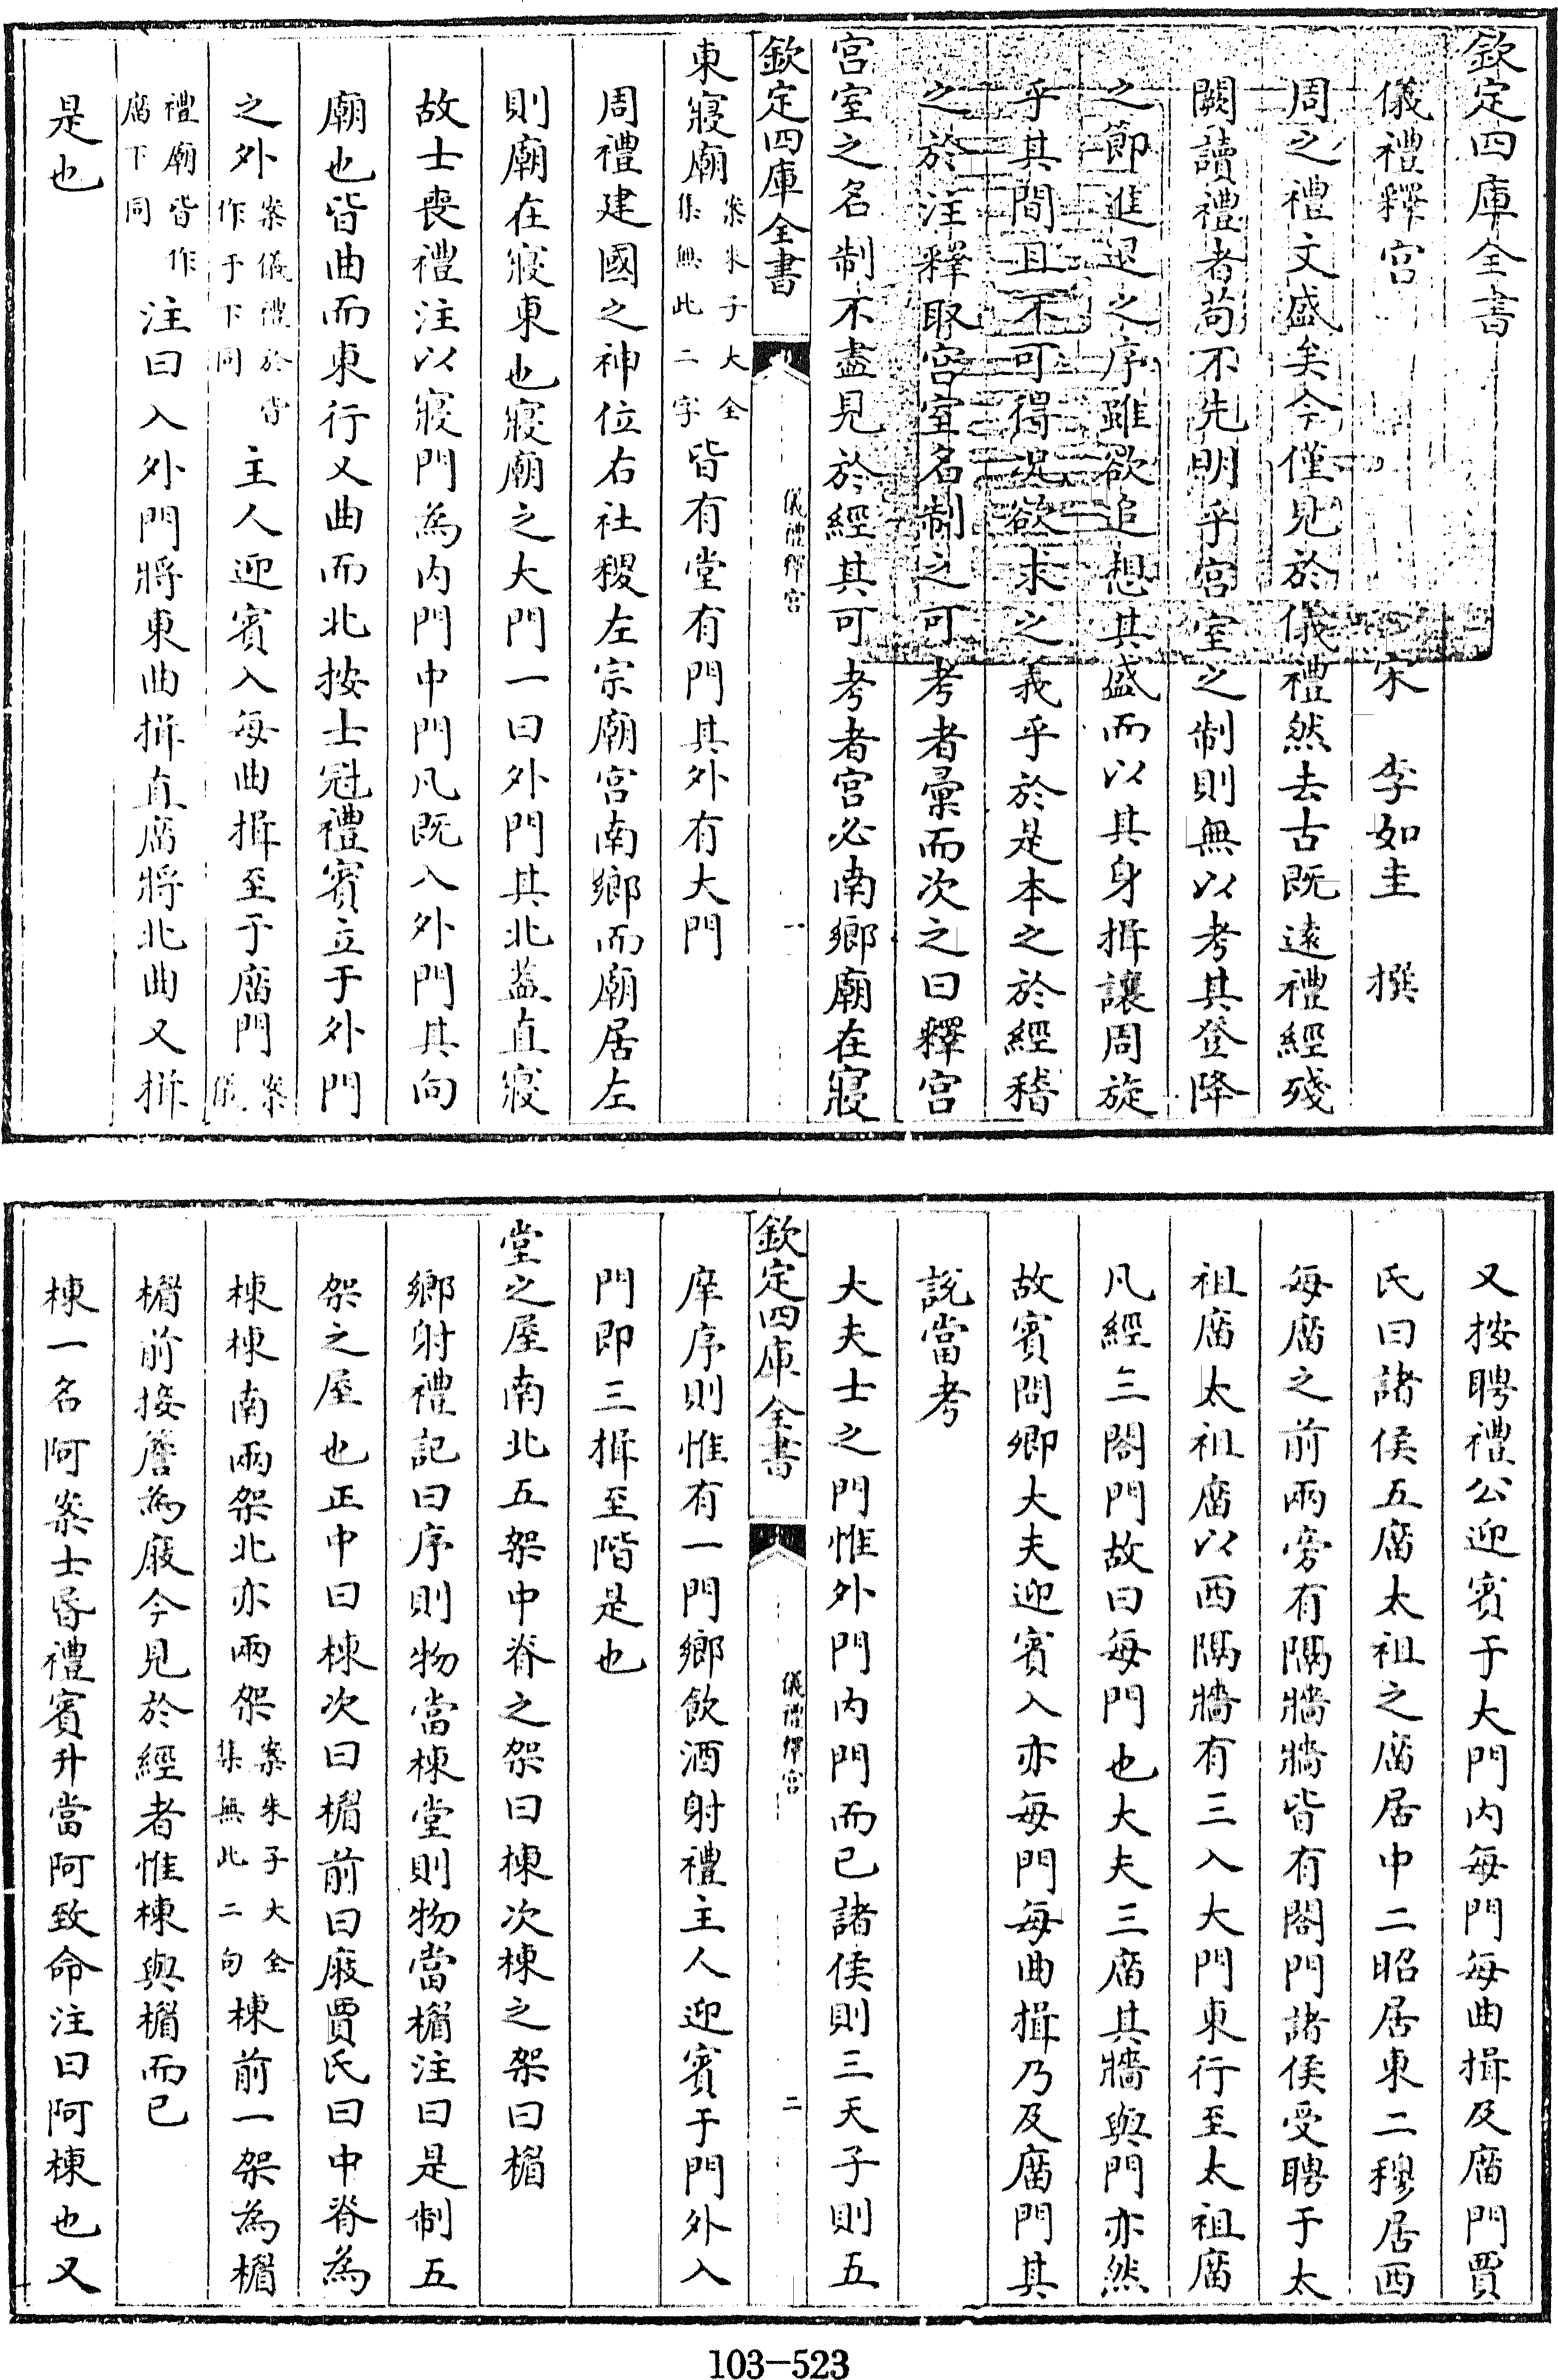 欽定四庫全書
儀禮釋宫
宋 李如圭 撰
周之禮文盛矣今僅見於儀禮然去古既遠禮經殘
闕讀禮者苟不先明乎宫室之制則無以考其登降
之節進退之序雖欲追想其盛而以其身揖讓周旋
乎其間且不可得况欲求之義乎於是本之於經稽
之於注釋取宫室名制之可考者彙而次之曰釋宫
宫室之名制不盡見於經其可考者宫必南鄉廟在寢
欽定四庫全書
儀禮釋宫
一
東寢廟案朱子大全集無此二字皆有堂有門其外有大門
周禮建國之神位右社稷左宗廟宫南鄉而廟居左
則廟在寢東也寢廟之大門一曰外門其北蓋直寢
故士喪禮注以寢門為内門中門凡既入外門其向
廟也皆曲而東行又曲而北按士冠禮賓立于外門
之外案儀禮於皆作于下同主人迎賓入每曲揖至于庿門案儀
禮廟皆作庿下同注曰入外門將東曲揖直庿將北曲又揖
是也
又按聘禮公迎賓于大門内每門每曲揖及庿門賈
氏曰諸侯五庿太祖之庿居中二昭居東二穆居西
每庿之前兩旁有隔牆牆皆有閤門諸侯受聘于太
祖庿太祖庿以西隔牆有三入大門東行至太祖庿
凡經三閤門故曰每門也大夫三庿其牆與門亦然
故賓問卿大夫迎賓入亦每門每曲揖乃及庿門其
說當考
大夫士之門惟外門内門而已諸侯則三天子則五
欽定四庫全書
儀禮釋宫
二
庠序則惟有一門鄉飲酒射禮主人迎賓于門外入
門即三揖至階是也
堂之屋南北五架中脊之架曰棟次棟之架曰楣
鄉射禮記曰序則物當棟堂則物當楣注曰是制五
架之屋也正中曰棟次曰楣前曰庪賈氏曰中脊為
棟棟南兩架北亦兩架案朱子大全集無此二句棟前一架為楣
楣前接簷為庪今見於經者惟棟與楣而已
棟一名阿案士昏禮賓升當阿致命注曰阿棟也又
103-523